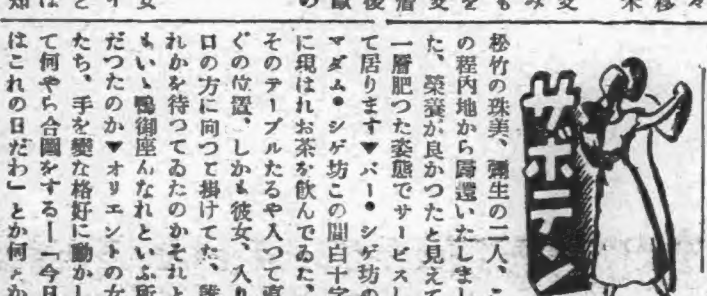 サボテン
松竹の珠美、彌生の二人、こ
の程内地から歸還いたしまし
た、榮養が良かつたと見えて
一層肥つた姿態でサービスし
て居ります▼バー●シゲ坊の
マダム●シゲ坊この間白十字
に現はれお茶を飲んでゐた、
そのテーブルたるや入つて直
ぐの位置、しかも彼女、入り
口の方に向つて掛けてた、誰
れかを待つてゐたのかそれと
もいゝ鴨御座んなれといふ所
だつたのか▼オリエントの女
たち、手を變な格好に動かし
て何やら合圖をする―「今日
はこれの日だわ」とか何とか